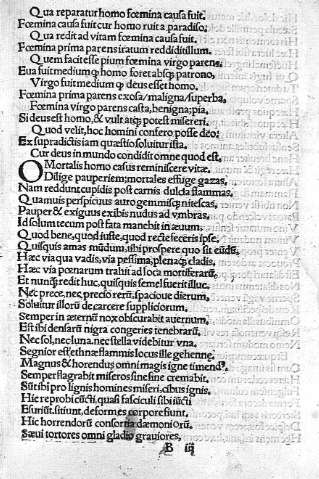 Qua reparatur homo fœmina causa fuit.
Fœmina causa fuit cur homo ruit a paradiso,
Qua redit ad vitam fœmina causa fuit.
Fœmina prima parens iratum reddidit illum.
Quem facit esse pium fœmina virgo parens.
Eua fuit medium qͥ homo foret absqꝫ patrono,
Virgo fuit medium qͥ deus esset homo.
Fœmina prima parens exosa/maligna/superba,
Fœmina virgo parens casta, benigna, pia,
Si deus est homo, & vult atqꝫ potest misereri.
Quod velit, hoc homini confero posse deo:
Ex supradictis iam quæstio soluitur ista.
Cur deus in mundo condidit omne quod est,
O Mortalis homo casus reminiscere vitæ.
Dilige pauperiem: mortales effuge gazas,
Nam reddunt cupidis post carnis dulcia flammas,
Quamuis perspicuus auro gemmisqꝫ nitescas,
Pauper & exiguus exibis nudus ad vmbras,
Id solum tecum post fata manebit in æuum,
Quod bene, quod iuste, quod recte feceris ipse,
Quisquis amas mūdum, tibi prospere quo sit eūdū,
Hæc via qua vadis, via pessima, plenaqꝫ cladis,
Hæc via pœnarum trahit ad loca mortiferarū,
Et nunqꝫ redit huc, quisquis semel fuerit illuc.
Nec prece, nec precio rerū, spacioue dierum,
Soluitur illorū de carcere suppliciorum,
Semper in æternū nox obscurabit auernum,
Est ibi densarū nigra congeries tenebrarū,
Nec sol, nec luna, nec stella videbitur vna.
Segnior est ethnæ flammis locus ille gehennę.
Magnus & horrendus omni magis igne timendꝰ,
Semper flagrabit miseros sine fine cremabit.
Sūt tibi pro lignis homines miseri, cibus ignis,
Hic reprobi iūcti quasi fasciculi sibi iūcti
Esuriūt, sitiunt, deformes corpore fiunt.
Hic horrendorū consortia dæmoniorū,
Sæui tortores omni gladio grauiores,
B iij